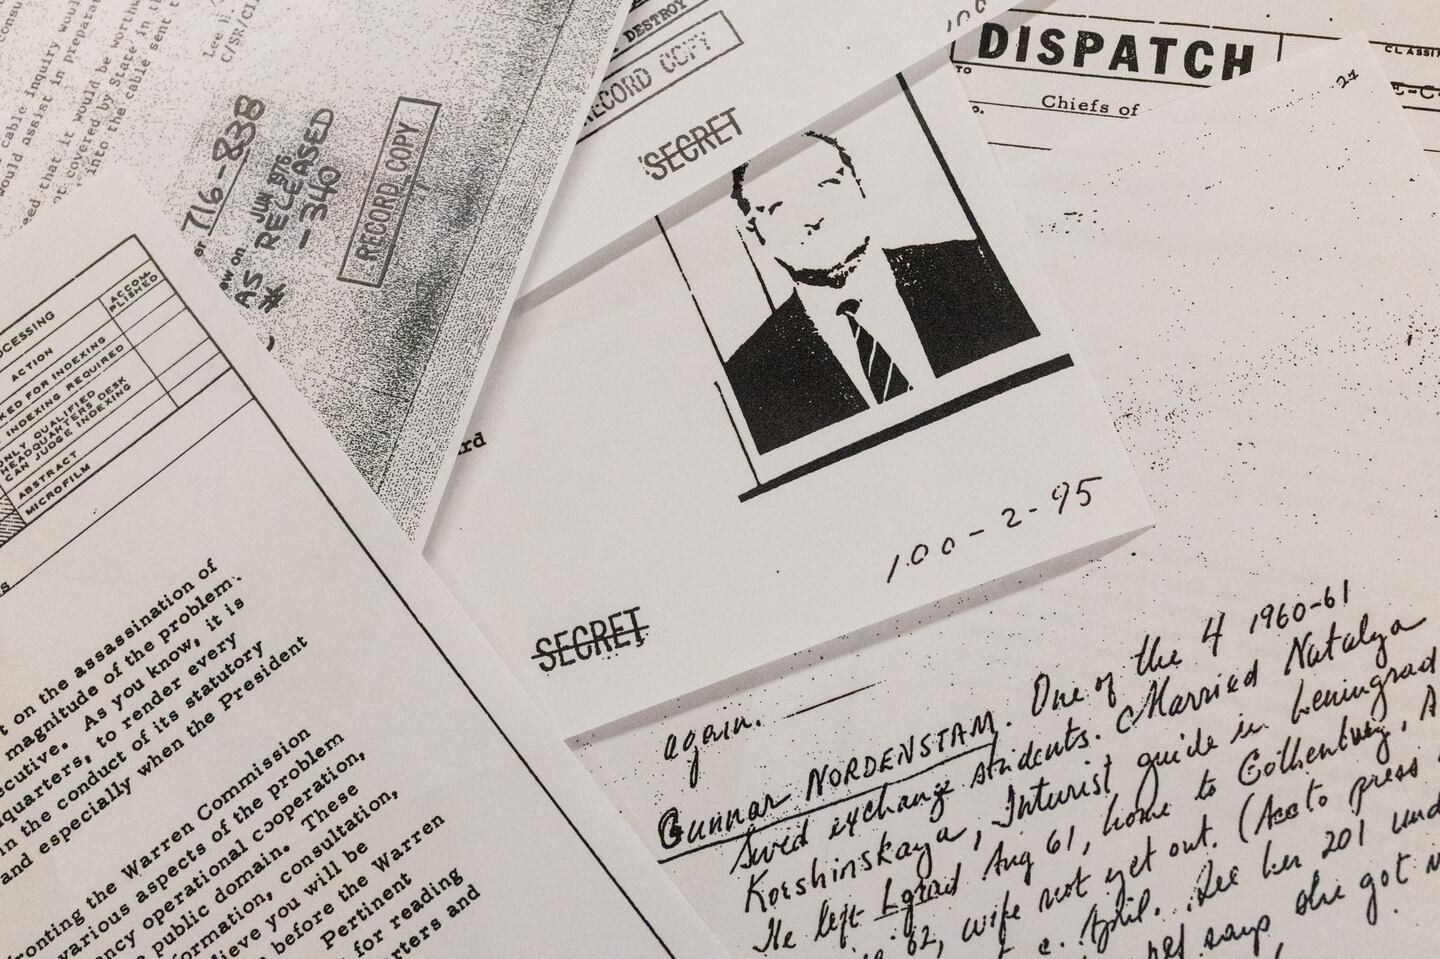 cable inquiry would
would assist in preparat
eed that it would be worthw
ot covered by State in th
into the cable sent t
C/SR/CI
716-838
JUN 1976
RELEASED
AS
-340
#
RECORD COPY
DESTROY
RECORD COPY
SECRET
100
DISPATCH
TO
CLASSIF
Chiefs of
OCESSING
ACTION
ACCOM-
PLISHED
KED FOR INDEXING
INDEXING REQUIRED
ONLY QUALIFIED DESK
HEADQUARTERS DESK
CAN JUDGE INDEXING
ABSTRACT
MICROFILM
rd
100-2-95
SECRET
t on the assassination of
magnitude of the problem.
ecutive. As you know, it is
quarters, to render every
in the conduct of its statutory
and especially when the President
fronting the Warren Commission
various aspects of the problem
ency operational cooperation,
public domain. These
formation, consultation,
lieve you will be
before the Warren
Pertinent
for reading
rters and
again.
Gunnar NORDENSTAM. One of the 4 1960-61
Swed exchange students. Married Natalya
Korshinskaya, Inturist guide in Leningrad
He left Lgrad Aug 61, home to Gothenburg, A
'62, wife not yet out. (Acc to press
c. April. See her 201 und
says she got